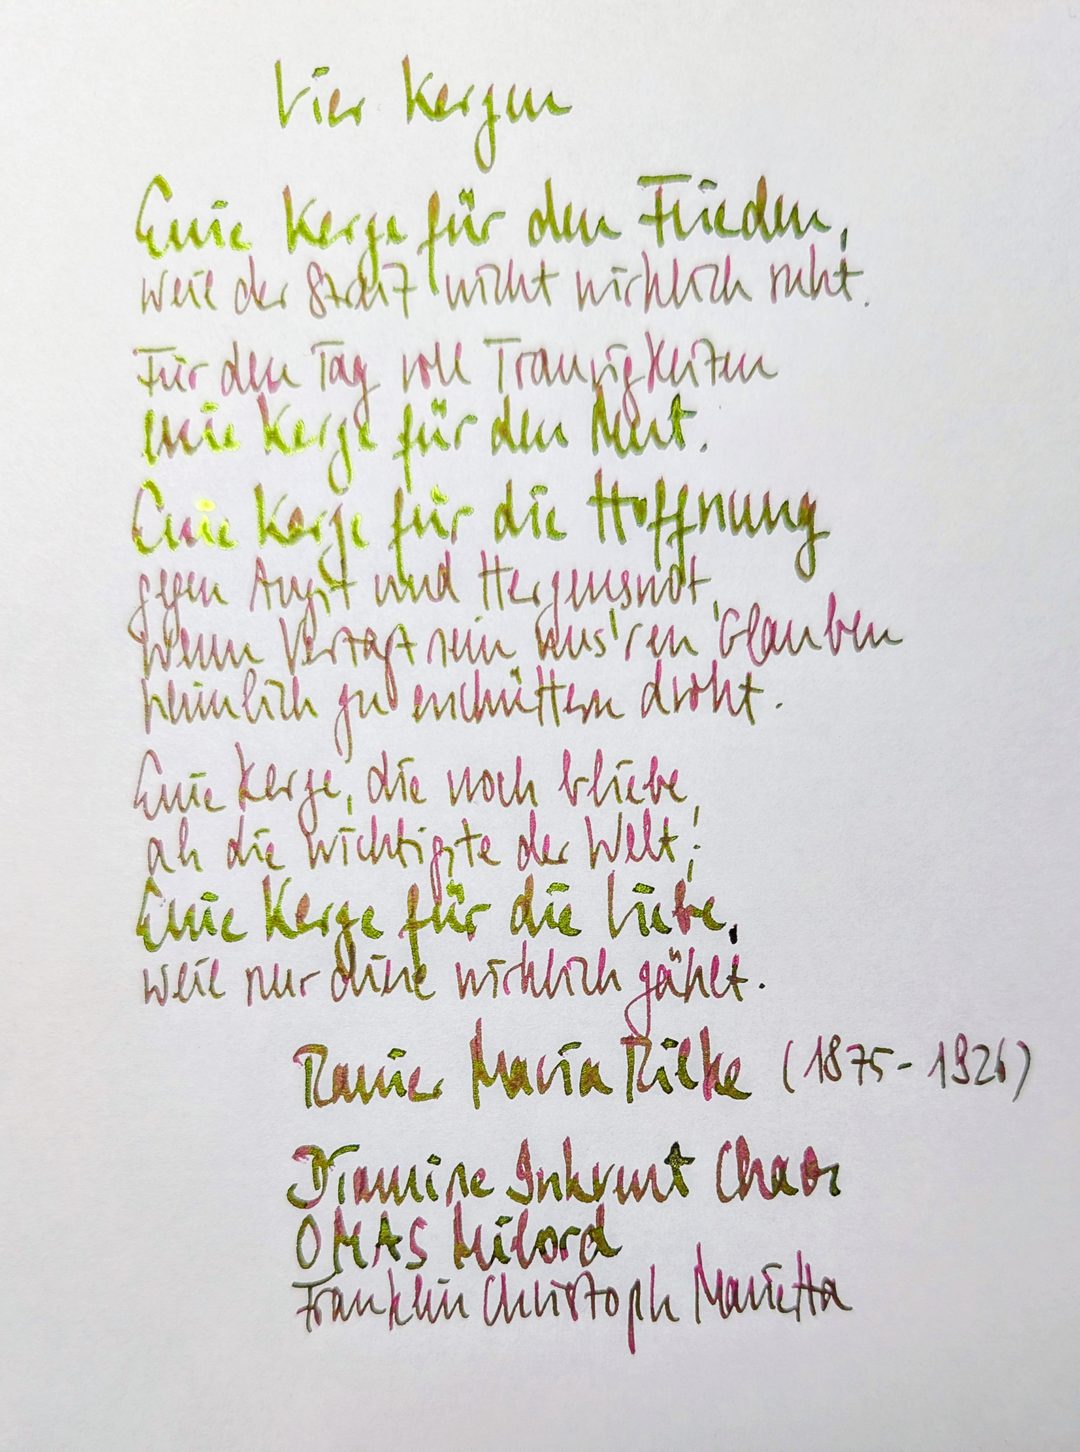 Vier Kerzen
Eine Kerze für den Frieden,
weil der Streit nicht wirklich ruht.
Für den Tag voll Traurigkeiten
eine Kerze für den Mut.
Eine Kerze für die Hoffnung
gegen Angst und Herzensnot,
wenn Verzagtsein uns'ren Glauben
heimlich zu erschüttern droht.
Eine Kerze, die noch bliebe,
als die wichtigste der Welt!
Eine Kerze für die Liebe,
weil nur diese wirklich zählt.
Rainer Maria Rilke (1875-1926)
Diamine Inkvent Chaos
OMAS Milord
Franklin Christoph Marietta